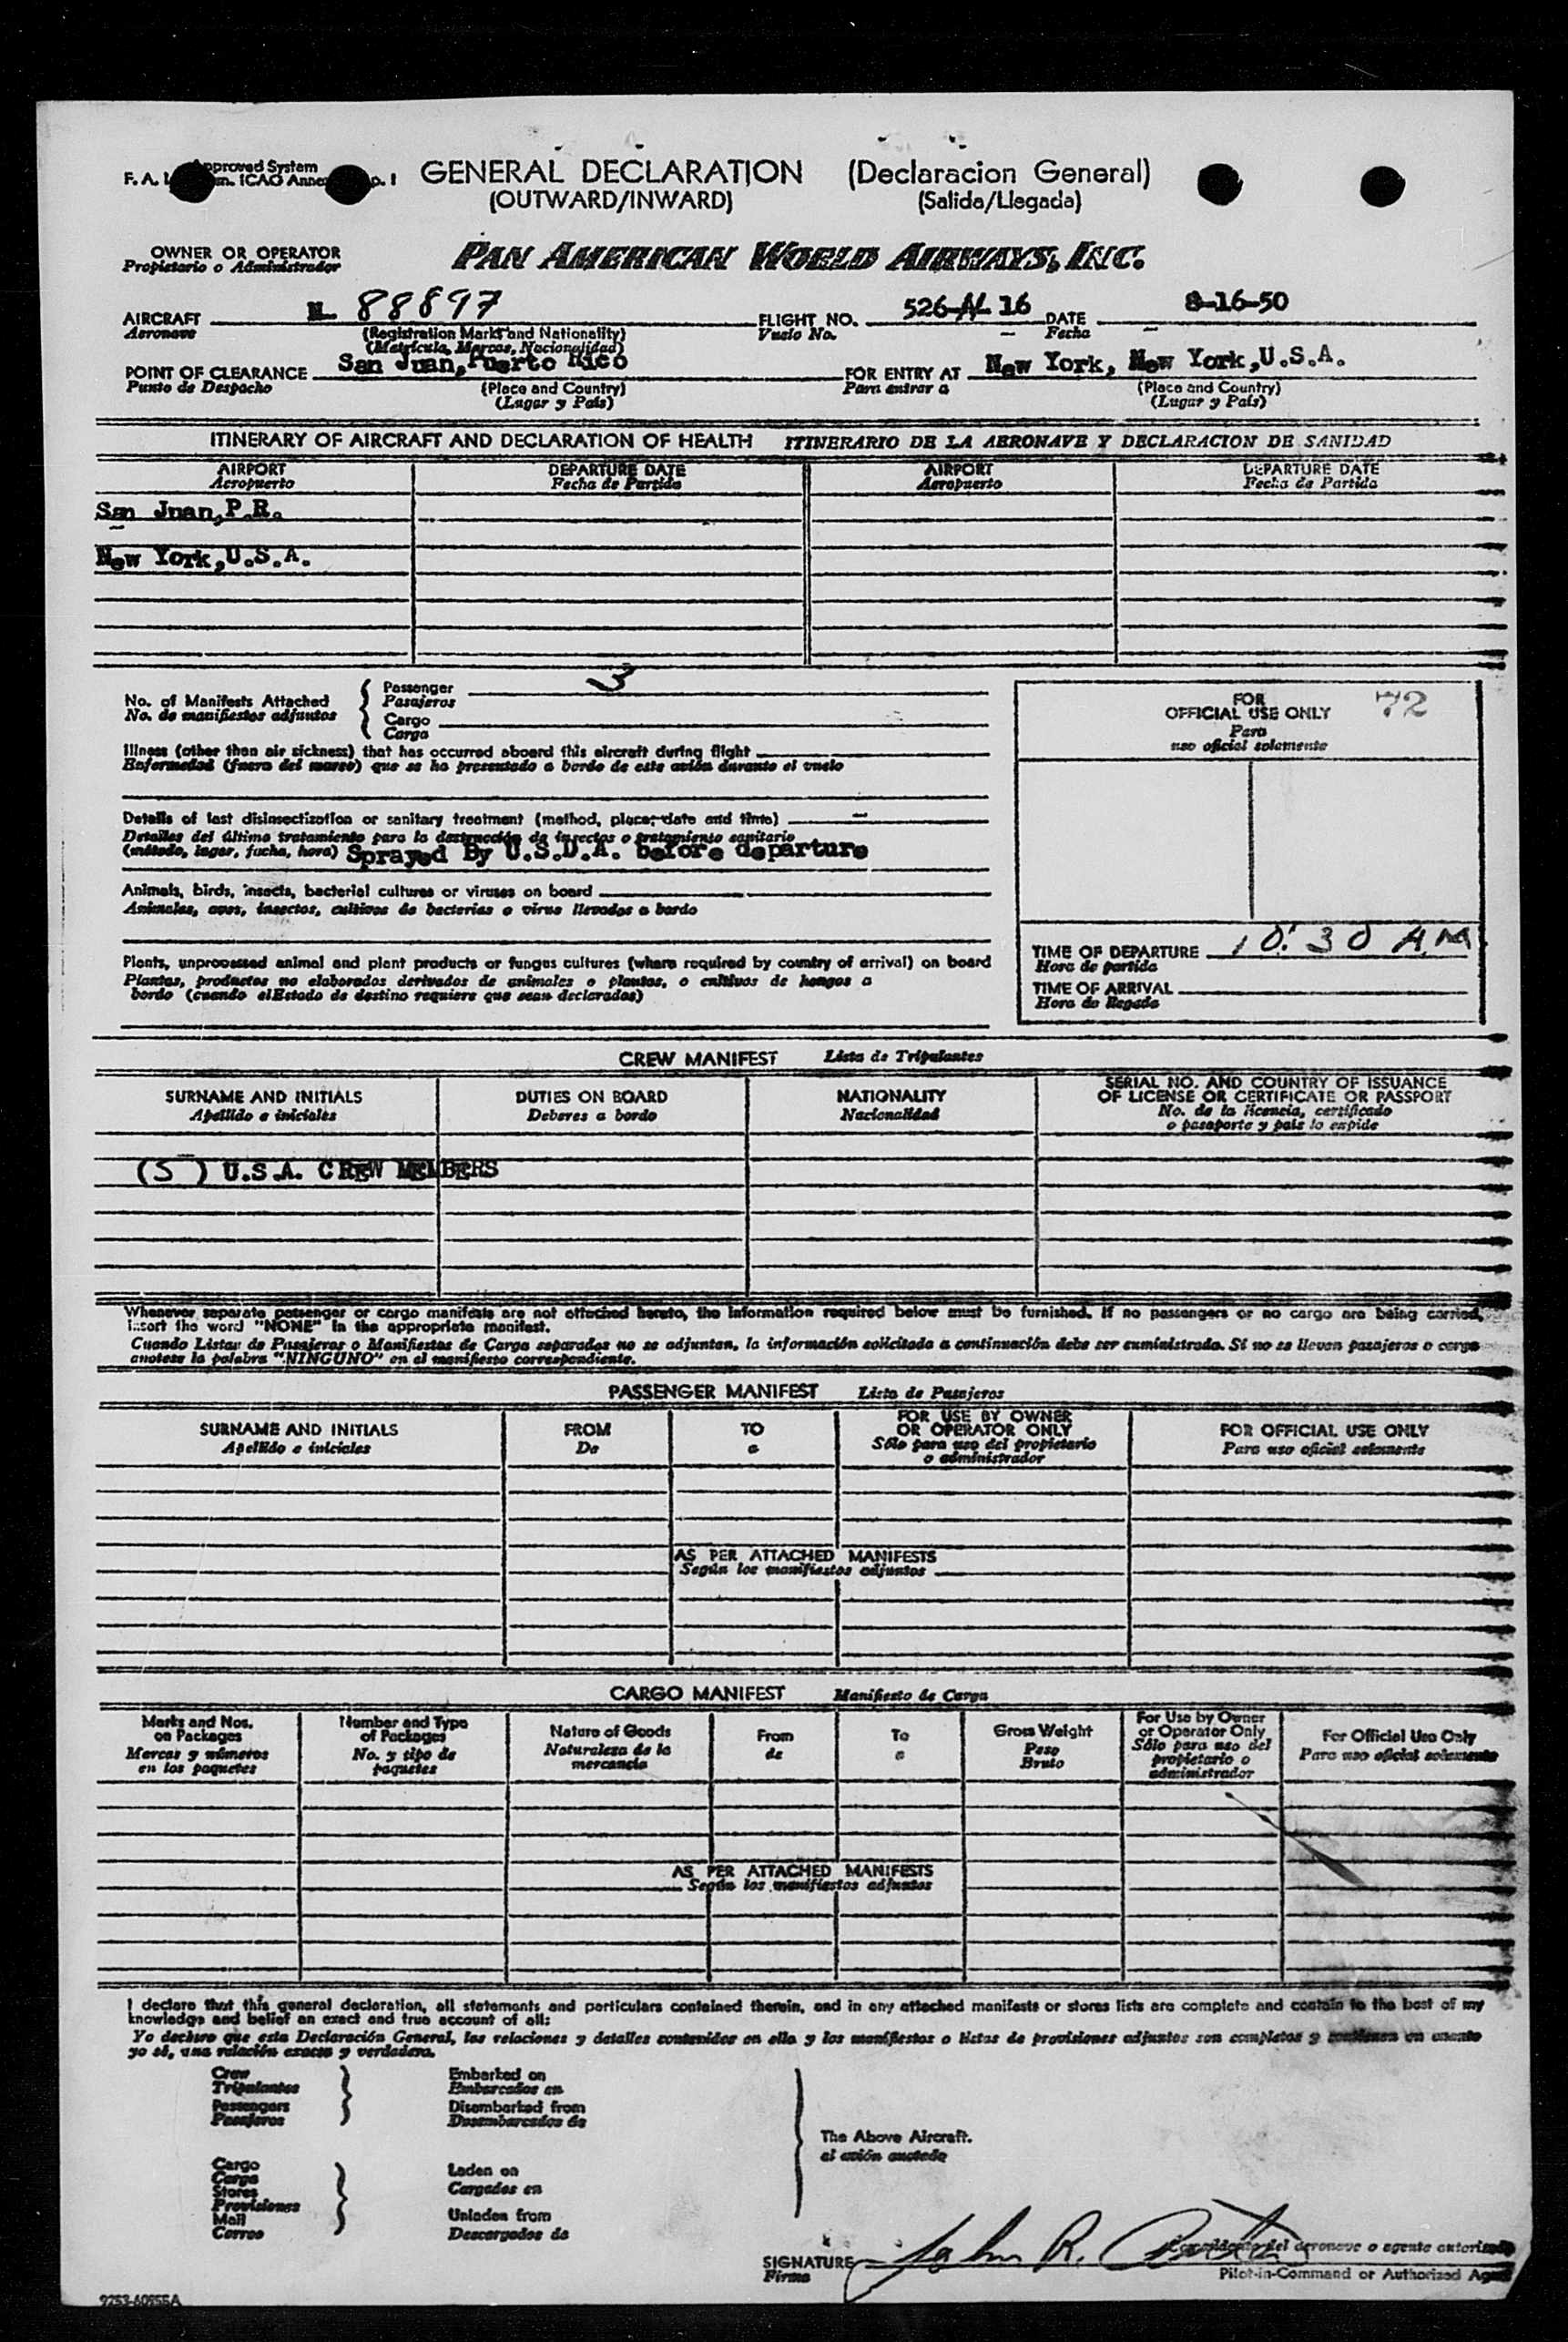 Approved System
F. A. L. ICAO Annex 1
GENERAL DECLARATION (Declaracion General)
(OUTWARD/INWARD) (Salida/Llegada)
OWNER OR OPERATOR
Propietario o Administrador
PAN AMERICAN WORLD AIRWAYS, INC.
AIRCRAFT N 88897 FLIGHT NO. 526-N 16 DATE 8-16-50
Aeronave (Registration Marks and Nationality) Vuelo No. Fecha
(Matrícula, Marcas, Nacionalidad)
POINT OF CLEARANCE San Juan, Puerto Rico FOR ENTRY AT New York, New York, U.S.A.
Punto de Despacho (Place and Country) Para entrar a (Place and Country)
(Lugar y País) (Lugar y País)
ITINERARY OF AIRCRAFT AND DECLARATION OF HEALTH ITINERARIO DE LA AERONAVE Y DECLARACION DE SANIDAD
AIRPORT DEPARTURE DATE AIRPORT DEPARTURE DATE
Aeropuerto Fecha de Partida Aeropuerto Fecha de Partida
San Juan, P.R.
New York, U.S.A.
No. of Manifests Attached
No. de manifiestos adjuntos
Passenger 3
Pasajeros
Cargo
Carga
Illness (other than air sickness) that has occurred aboard this aircraft during flight
Enfermedad (fuera del mareo) que se ha presentado a bordo de este avión durante el vuelo
Details of last disinsectization or sanitary treatment (method, place, date and time)
Detalles del último tratamiento para la destrucción de insectos o tratamiento sanitario
(método, lugar, fecha, hora) Sprayed By U.S.D.A. before departure
Animals, birds, insects, bacterial cultures or viruses on board
Animales, aves, insectos, cultivos de bacterias o virus llevados a bordo
Plants, unprocessed animal and plant products or fungus cultures (where required by country of arrival) on board
Plantas, productos no elaborados derivados de animales o plantas, o cultivos de hongos a
bordo (cuando el Estado de destino requiere que sean declarados)
FOR
OFFICIAL USE ONLY 72
Para
uso oficial solamente
TIME OF DEPARTURE 10:30 AM
Hora de partida
TIME OF ARRIVAL
Hora de llegada
CREW MANIFEST Lista de Tripulantes
SURNAME AND INITIALS DUTIES ON BOARD NATIONALITY SERIAL NO. AND COUNTRY OF ISSUANCE
OF LICENSE OR CERTIFICATE OR PASSPORT
Apellido e iniciales Deberes a bordo Nacionalidad No. de la licencia, certificado
o pasaporte y país lo expide
(5) U.S.A. CREW MEMBERS
Whenever separate passenger or cargo manifests are not attached hereto, the information required below must be furnished. If no passengers or no cargo are being carried,
insert the word "NONE" in the appropriate manifest.
Cuando Listas de Pasajeros o Manifiestos de Carga separados no se adjuntan, la información solicitada a continuación debe ser suministrada. Si no se llevan pasajeros o carga
anotese la palabra "NINGUNO" en el manifiesto correspondiente.
PASSENGER MANIFEST Lista de Pasajeros
SURNAME AND INITIALS FROM TO FOR USE BY OWNER
OR OPERATOR ONLY FOR OFFICIAL USE ONLY
Apellido e iniciales De a Sólo para uso del propietario
o administrador Para uso oficial solamente
AS PER ATTACHED MANIFESTS
Según los manifiestos adjuntos
CARGO MANIFEST Manifiesto de Carga
Marks and Nos.
on Packages
Marcas y números
en los paquetes
Number and Type
of Packages
No. y tipo de
paquetes
Nature of Goods
Naturaleza de la
mercancía
From
de
To
a
Gross Weight
Peso
Bruto
For Use by Owner
or Operator Only
Sólo para uso del
propietario o
administrador
For Official Use Only
Para uso oficial solamente
AS PER ATTACHED MANIFESTS
Según los manifiestos adjuntos
I declare that this general declaration, all statements and particulars contained therein, and in any attached manifests or stores lists are complete and contain to the best of my
knowledge and belief an exact and true account of all:
Yo declaro que esta Declaración General, las relaciones y detalles contenidos en ella y los manifiestos o listas de provisiones adjuntos son completos y contienen en cuanto
yo sé, una relación exacta y verdadera.
Crew
Tripulantes
Passengers
Pasajeros
Embarked on
Embarcados en
Disembarked from
Desembarcados de
The Above Aircraft.
el avión anotado
Cargo
Carga
Stores
Provisiones
Mail
Correo
Laden on
Cargados en
Unladen from
Descargados de
SIGNATURE John R.
Firma
del aeronave o agente autorizado
Pilot-in-Command or Authorized Agent